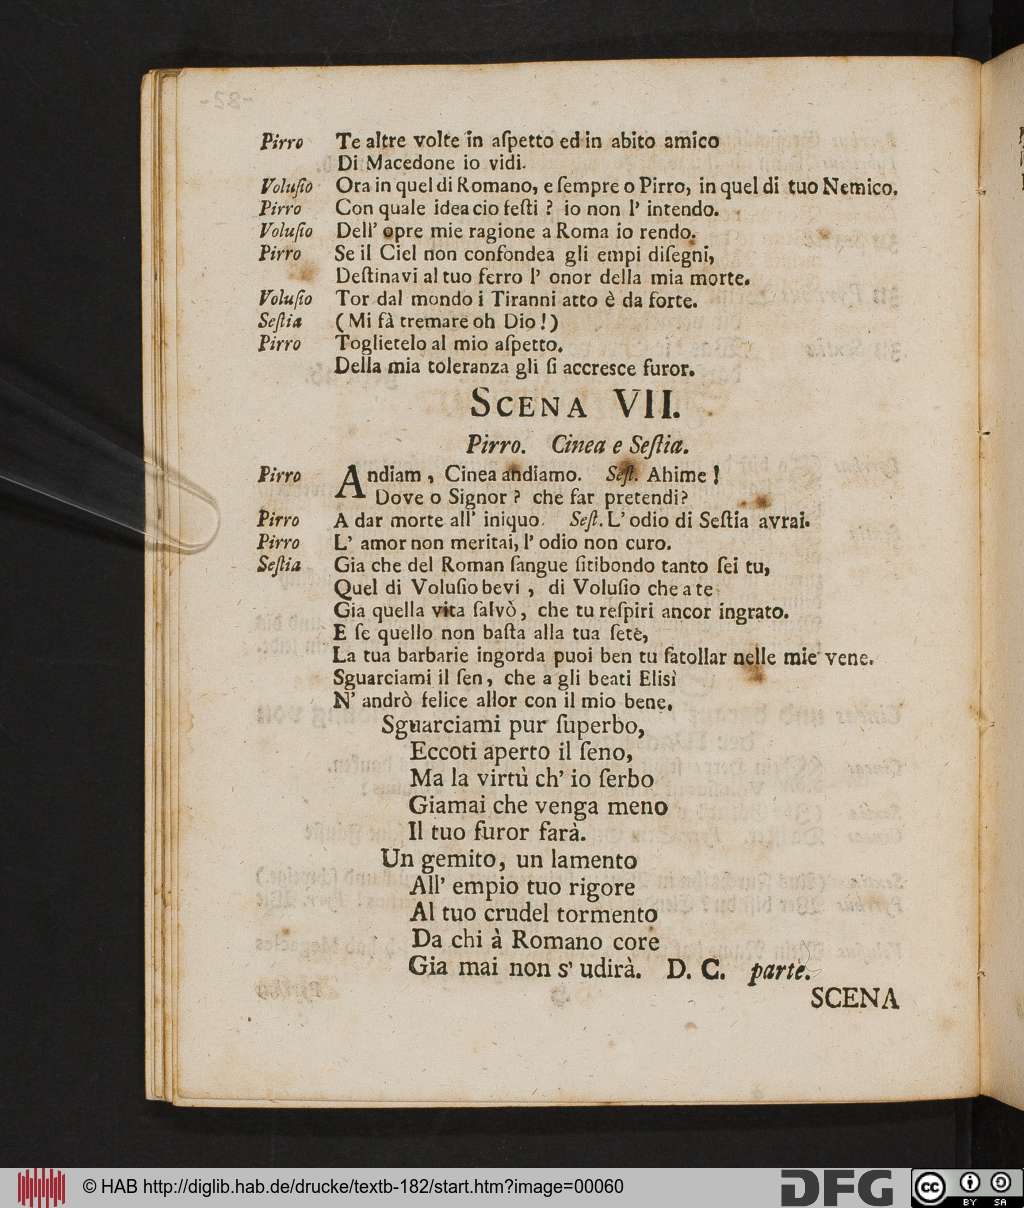 -58-
Pirro Te altre volte in aſpetto ed in abito amico
Di Macedone io vidi.
Voluſio Ora in quel di Romano, e ſempre o Pirro, in quel di tuo Nemico.
Pirro Con quale idea cio feſti ? io non l' intendo.
Voluſio Dell' opre mie ragione a Roma io rendo.
Pirro Se il Ciel non confondea gli empi diſegni,
Deſtinavi al tuo ferro l' onor della mia morte.
Voluſio Tor dal mondo i Tiranni atto è da forte.
Seſtia ( Mi fà tremare oh Dio ! )
Pirro Toglietelo al mio aſpetto.
Della mia toleranza gli ſi accresce furor.
SCENA VII.
Pirro. Cinea e Seſtia.
Pirro Andiam , Cinea andiamo. Seſt. Ahime !
Dove o Signor ? che far pretendi?
Pirro A dar morte all' iniquo. Seſt. L' odio di Seſtia avrai.
Pirro L' amor non meritai, l' odio non curo.
Seſtia Gia che del Roman ſangue ſitibondo tanto ſei tu,
Quel di Voluſio bevi , di Voluſio che a te
Gia quella vita ſalvò, che tu reſpiri ancor ingrato.
E ſe quello non baſta alla tua ſete,
La tua barbarie ingorda puoi ben tu ſatollar nelle mie vene.
Sguarciami il ſen, che a gli beati Elisì
N' andrò felice allor con il mio bene.
Sguarciami pur ſuperbo,
Eccoti aperto il ſeno,
Ma la virtù ch' io ſerbo
Giamai che venga meno
Il tuo furor farà.
Un gemito, un lamento
All' empio tuo rigore
Al tuo crudel tormento
Da chi à Romano core
Gia mai non s' udirà. D. C. parte.
SCENA
© HAB http://diglib.hab.de/drucke/textb-182/start.htm?image=00060
DFG
cc BY SA